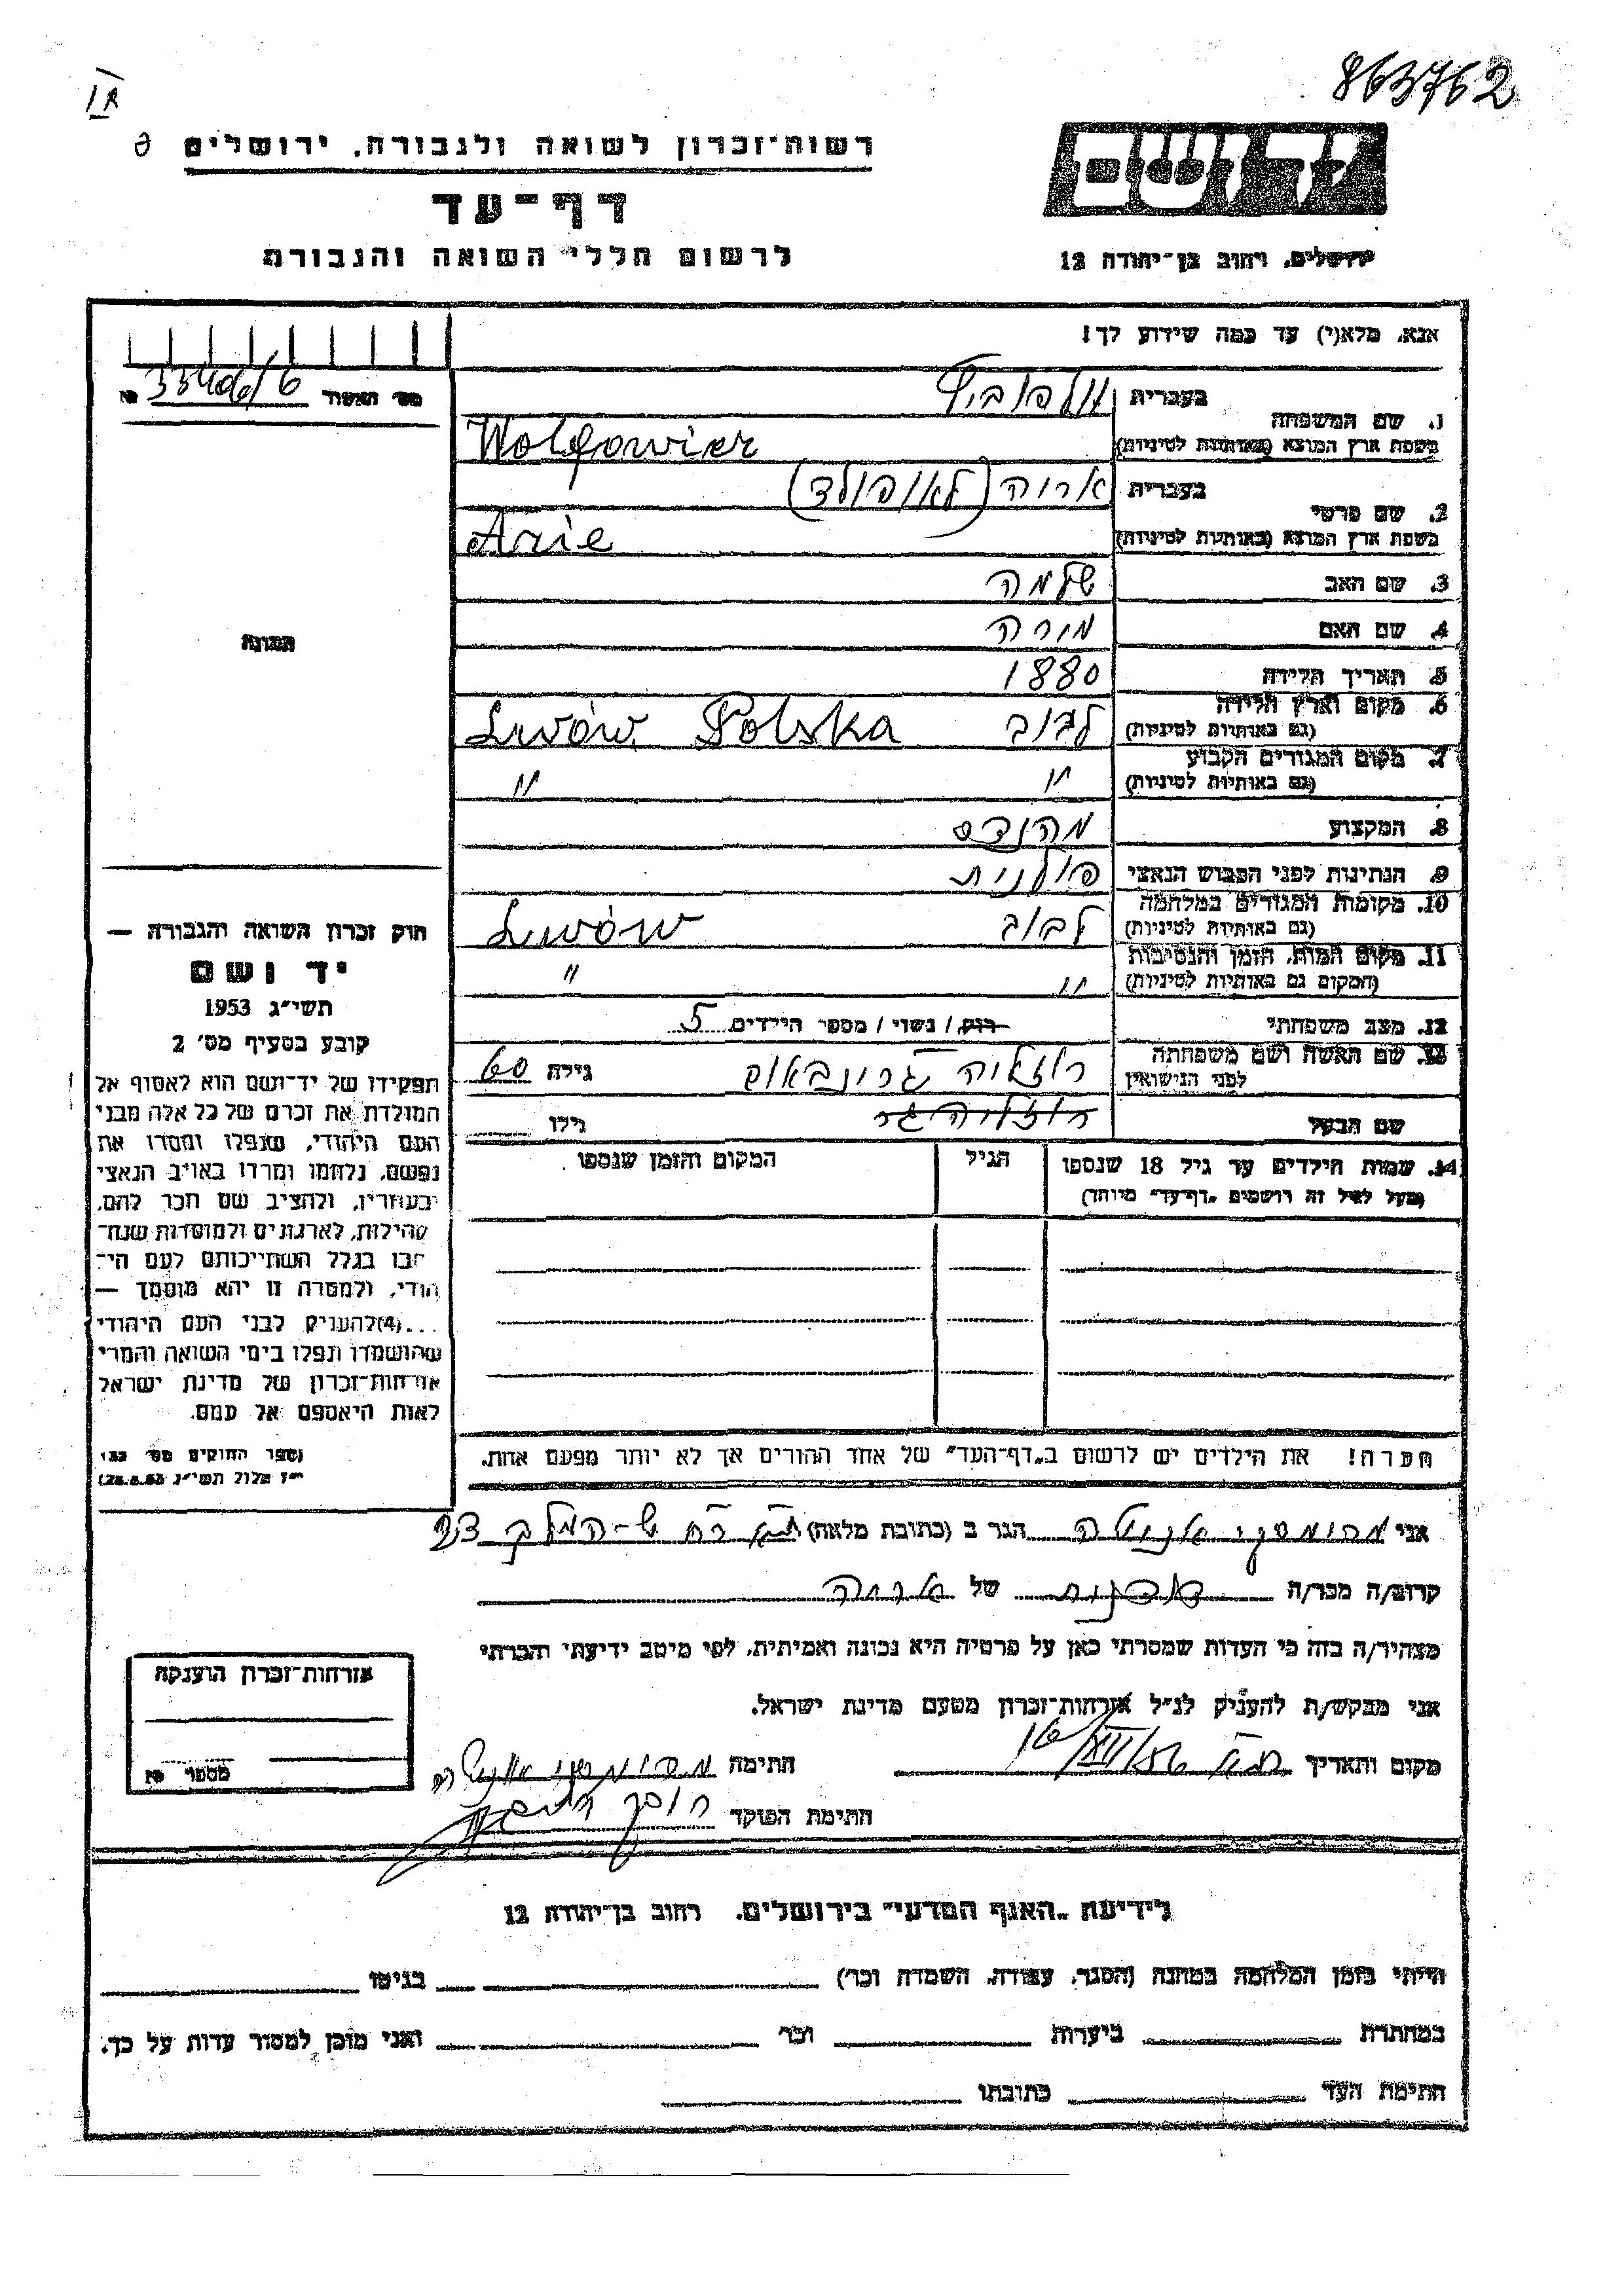 863762
רשות־זכרון לשואה ולגבורה, ירושלים
דף־עד
לרשום חללי השואה והגבורה
ירושלים, רחוב בן־יהודה 12
אנא, מלא(י) עד כמה שידוע לך!
מס' האשור 33406/6 №
1. שם המשפחה
בעברית וולפוביץ
בשפת ארץ המוצא (באותיות לטיניות) Wolfowicz
2. שם פרטי
בעברית אריה (לאופולד)
בשפת ארץ המוצא (באותיות לטיניות) Arie
3. שם האב שלמה
4. שם האם
5. תאריך הלידה 1880
6. מקום וארץ הלידה
(גם באותיות לטיניות) לבוב Lwów Polska
7. מקום המגורים הקבוע
(גם באותיות לטיניות) " "
8. המקצוע מהנדס
9. הנתינות לפני הכבוש הנאצי פולנית
10. מקומות המגורים במלחמה
(גם באותיות לטיניות) לבוב Lwów
11. מקום המות, הזמן והנסיבות
(המקום גם באותיות לטיניות) " "
12. מצב משפחתי רוק / נשוי / מספר הילדים 5
13. שם האשה ושם משפחתה
לפני הנישואין רוזליה גרינבאום גילה 60
שם הבעל רוזליה גר גילו
14. שמות הילדים עד גיל 18 שנספו הגיל המקום והזמן שנספו
(מעל לגיל זה רושמים "דף־עד" מיוחד)
הערה! את הילדים יש לרשום ב"דף־העד" של אחד ההורים אך לא יותר מפעם אחת.
התמונה
חוק זכרון השואה והגבורה —
יד ושם
תשי"ג 1953
קובע בסעיף מס' 2
תפקידו של יד־ושם הוא לאסוף אל
המולדת את זכרם של כל אלה מבני
העם היהודי, שנפלו ומסרו את
נפשם, נלחמו ומרדו באויב הנאצי
ובעוזריו, ולהציב שם וזכר להם,
לקהילות, לארגונים ולמוסדות שנח־
רבו בגלל השתייכותם לעם הי־
הודי, ולמטרה זו יהא מוסמך —
...(4) להעניק לבני העם היהודי
שהושמדו ונפלו בימי השואה והמרי
אזרחות־זכרון של מדינת ישראל
לאות היאספם אל עמם.
(ספר החוקים מס' 132
י"ז אלול תשי"ג 28.8.53)
אני הגר ב (כתובת מלאה)
קרוב/ה מכר/ה של אריה
מצהיר/ה בזה כי העדות שמסרתי כאן על פרטיה היא נכונה ואמיתית, לפי מיטב ידיעתי והכרתי
אני מבקש/ת להעניק לנ"ל אזרחות־זכרון מטעם מדינת ישראל.
מקום ותאריך חתימה
חתימת הפוקד
אזרחות־זכרון הוענקה
מספר №
לידיעת "האגף המדעי" בירושלים, רחוב בן־יהודה 12
הייתי בזמן המלחמה במחנה (הסגר, עבודה, השמדה וכו') בגיטו
במחתרת ביערות וכו' ואני מוכן למסור עדות על כך.
חתימת העד כתובתו